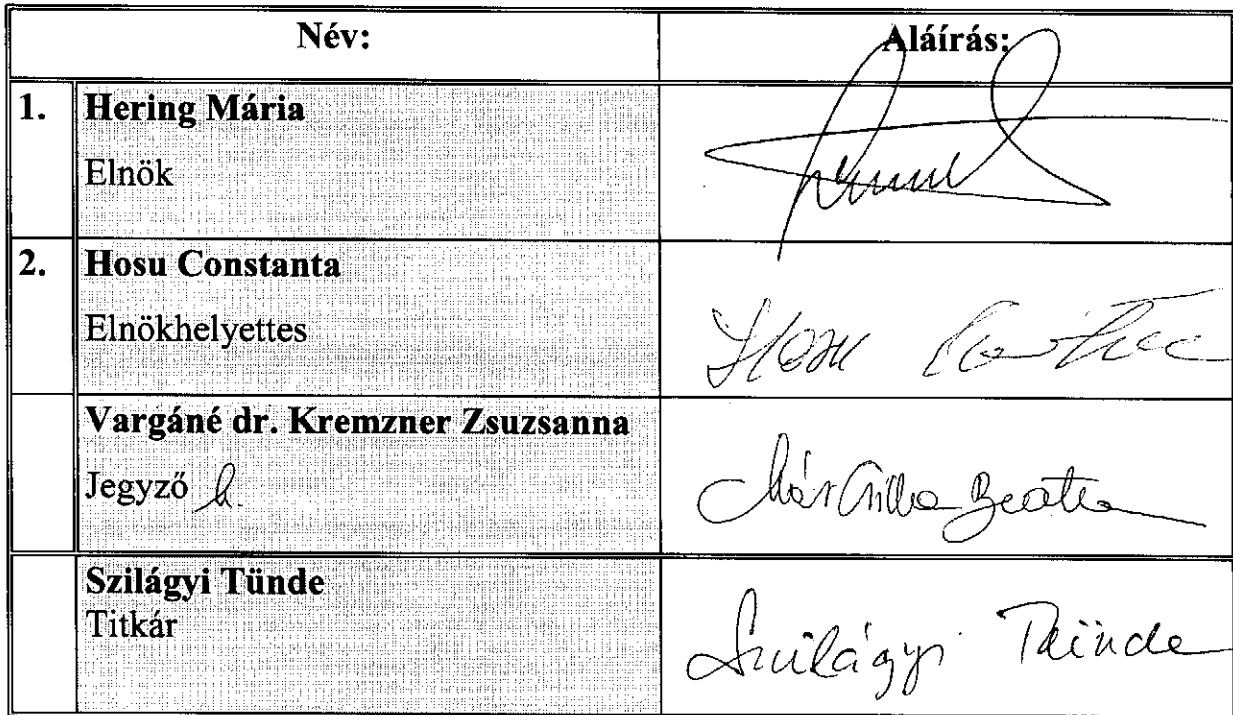 Név: Aláírás:
1. Hering Mária
Elnök
2. Hosu Constanta
Elnökhelyettes
Hosu
Vargáné dr. Kremzner Zsuzsanna
Jegyző h.
Beáta
Szilágyi Tünde
Titkár
Szilágyi Tünde